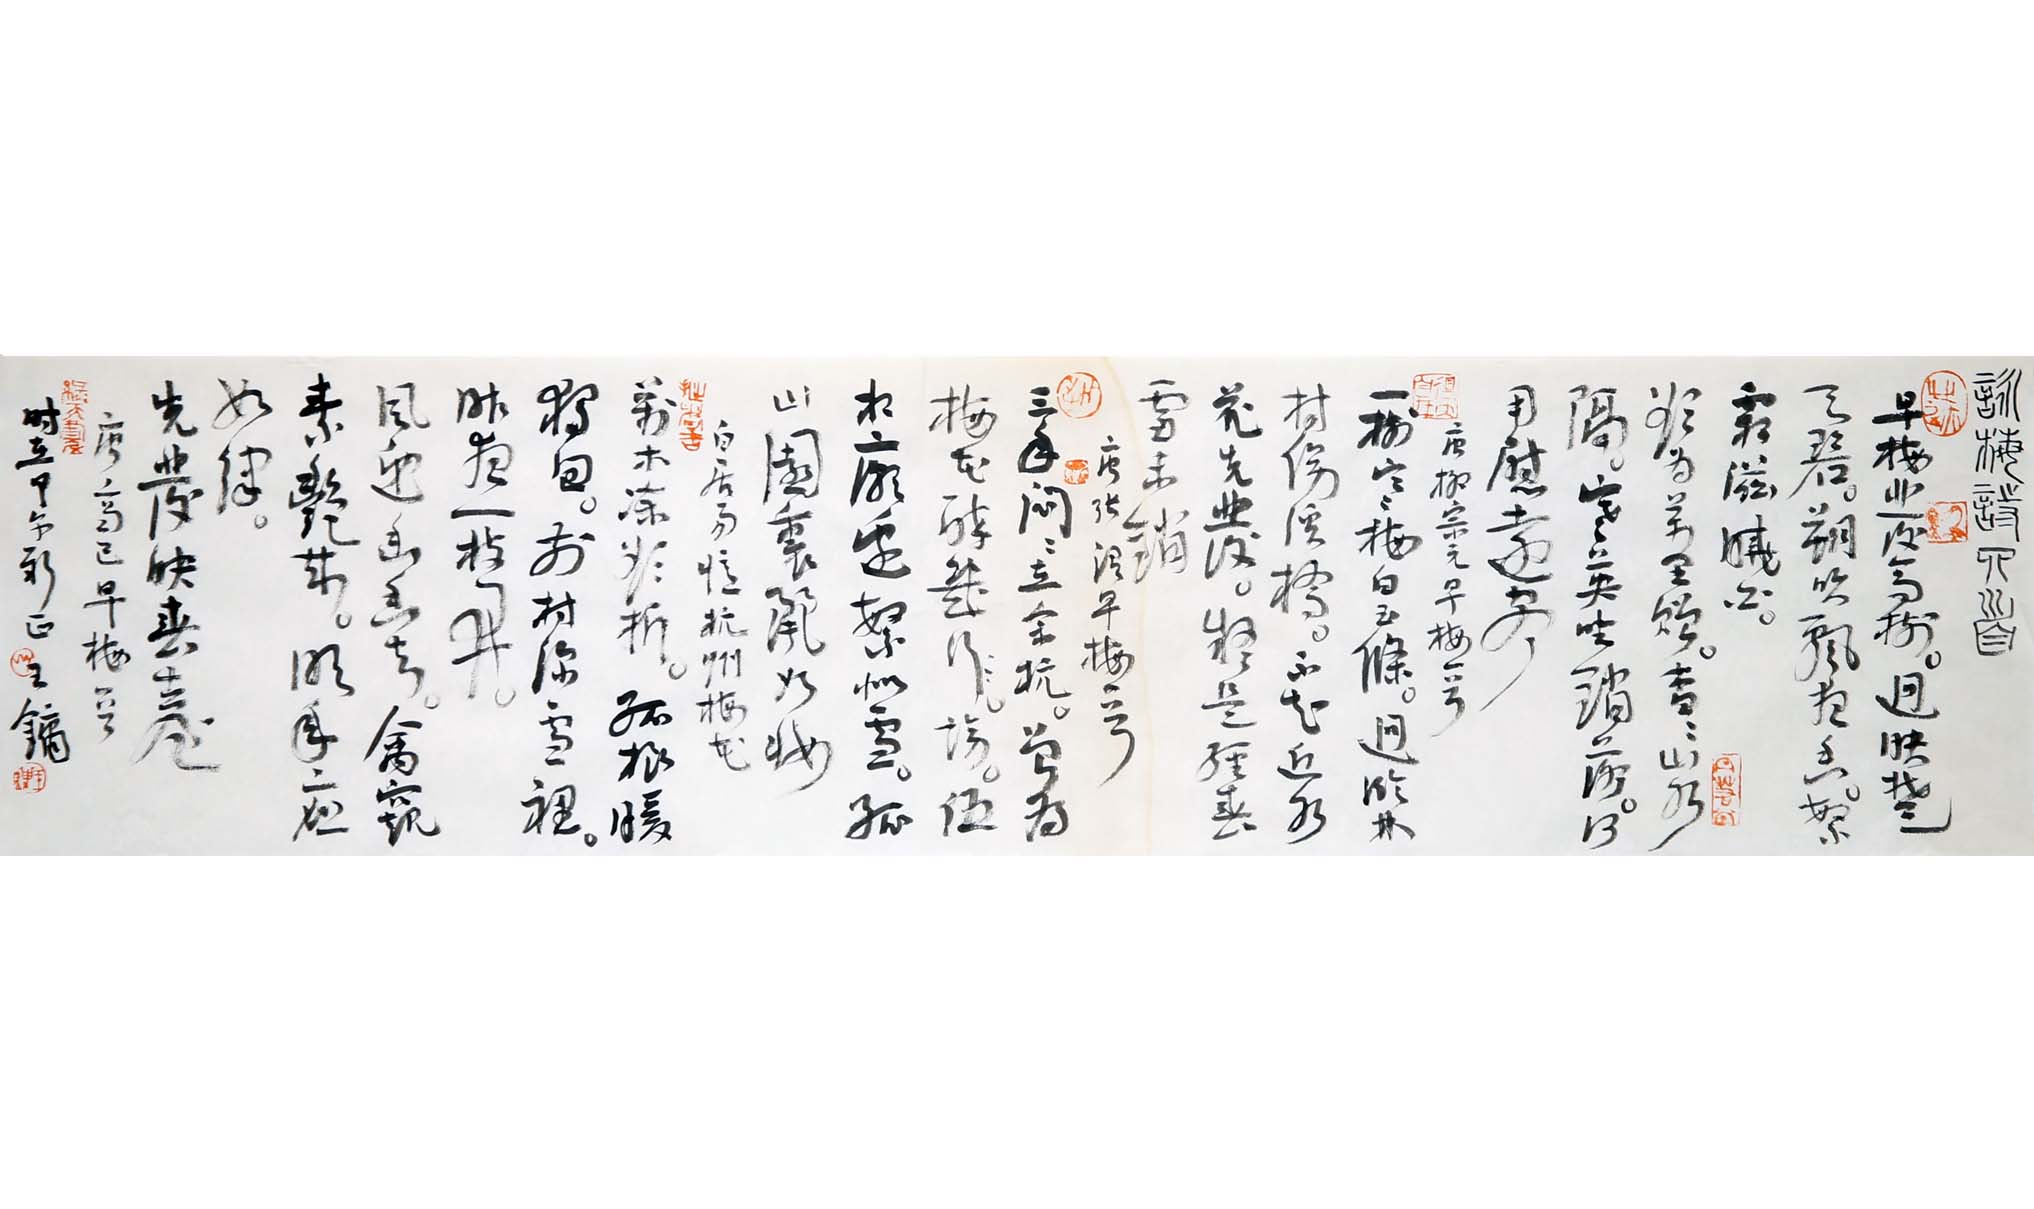 詠梅詩四首
早梅發高樹。迥映楚
天碧。朔吹飄夜香。繁
霜滋曉白。
欲為萬里贈。杳杳山水
隔。寒英坐銷落。何
用慰遠客
唐柳宗元早梅一首
一樹寒梅白玉條。迥臨林
村傍溪橋。不知近水
花先發。疑是經春
雪未銷
唐張謂早梅一首
三年悶悶在余杭。曾為
梅花醉幾場。伍
相廟邊繁似雪。孤
山園裏麗如妝
白居易憶杭州梅花
萬木凍欲折。孤根暖
獨回。前村深雪裡。
昨夜一枝開。
風遞幽香去。禽窺
素艷來。明年應
如律。
先發映春臺
唐齊己早梅一首
时在甲午新正王鏞